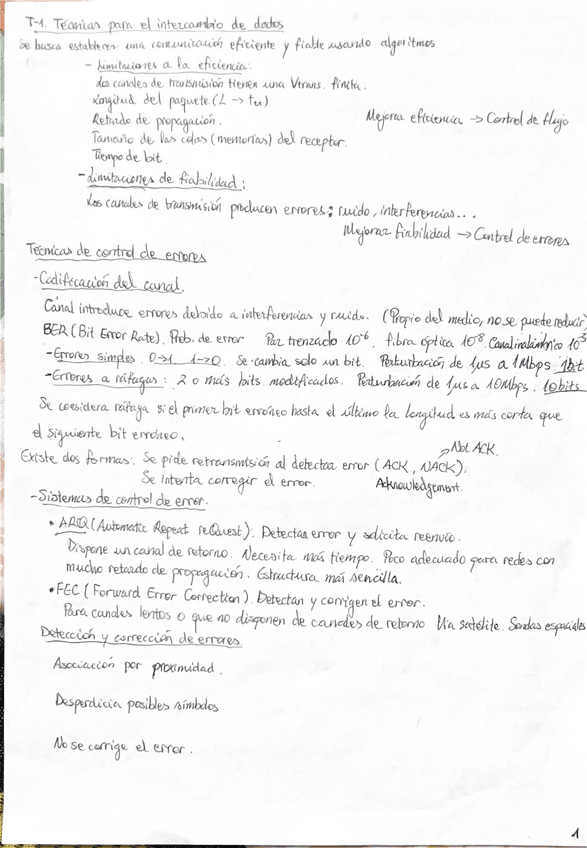 T-1. Técnicas para el intercambio de dados
Se busca establecer una comunicación eficiente y fiable usando algoritmos
- Limitaciones a la eficiencia:
Los canales de transmisión tienen una Vtrans. finita.
Longitud del paquete (L → ttx)
Retardo de propagación.
Mejorar eficiencia → Control de flujo
Tamaño de las colas (memorias) del receptor.
Tiempo de bit.
- Limitaciones de fiabilidad:
Los canales de transmisión producen errores: ruido, interferencias...
Mejorar fiabilidad → Control de errores
Técnicas de control de errores
- Codificación del canal.
Canal introduce errores debido a interferencias y ruido. (Propio del medio, no se puede reducir)
BER (Bit Error Rate). Prob. de error Par trenzado 10⁻⁶. fibra óptica 10⁻⁸ Canal inalámbrico 10⁻³
- Errores simples. 0→1 1→0. Se cambia solo un bit. Perturbación de 1µs a 1Mbps. 1bit
- Errores a ráfagas: 2 o más bits modificados. Perturbación de 1µs a 10Mbps. 10bits
Se considera ráfaga si el primer bit erróneo hasta el último la longitud es más corta que
el siguiente bit erróneo.
Not ACK.
Existe dos formas: Se pide retransmisión al detectar error (ACK, NACK).
Se intenta corregir el error.
Acknowledgement.
- Sistemas de control de error.
• ARQ (Automatic Repeat reQuest). Detectan error y solicita reenvío.
Dispone un canal de retorno. Necesita más tiempo. Poco adecuado para redes con
mucho retardo de propagación. Estructura más sencilla.
• FEC (Forward Error Correction). Detectan y corrigen el error.
Para canales lentos o que no disponen de canales de retorno Vía satélite. Sondas espaciales
Detección y corrección de errores.
Asociación por proximidad.
Desperdicia posibles símbolos
No se corrige el error.
1